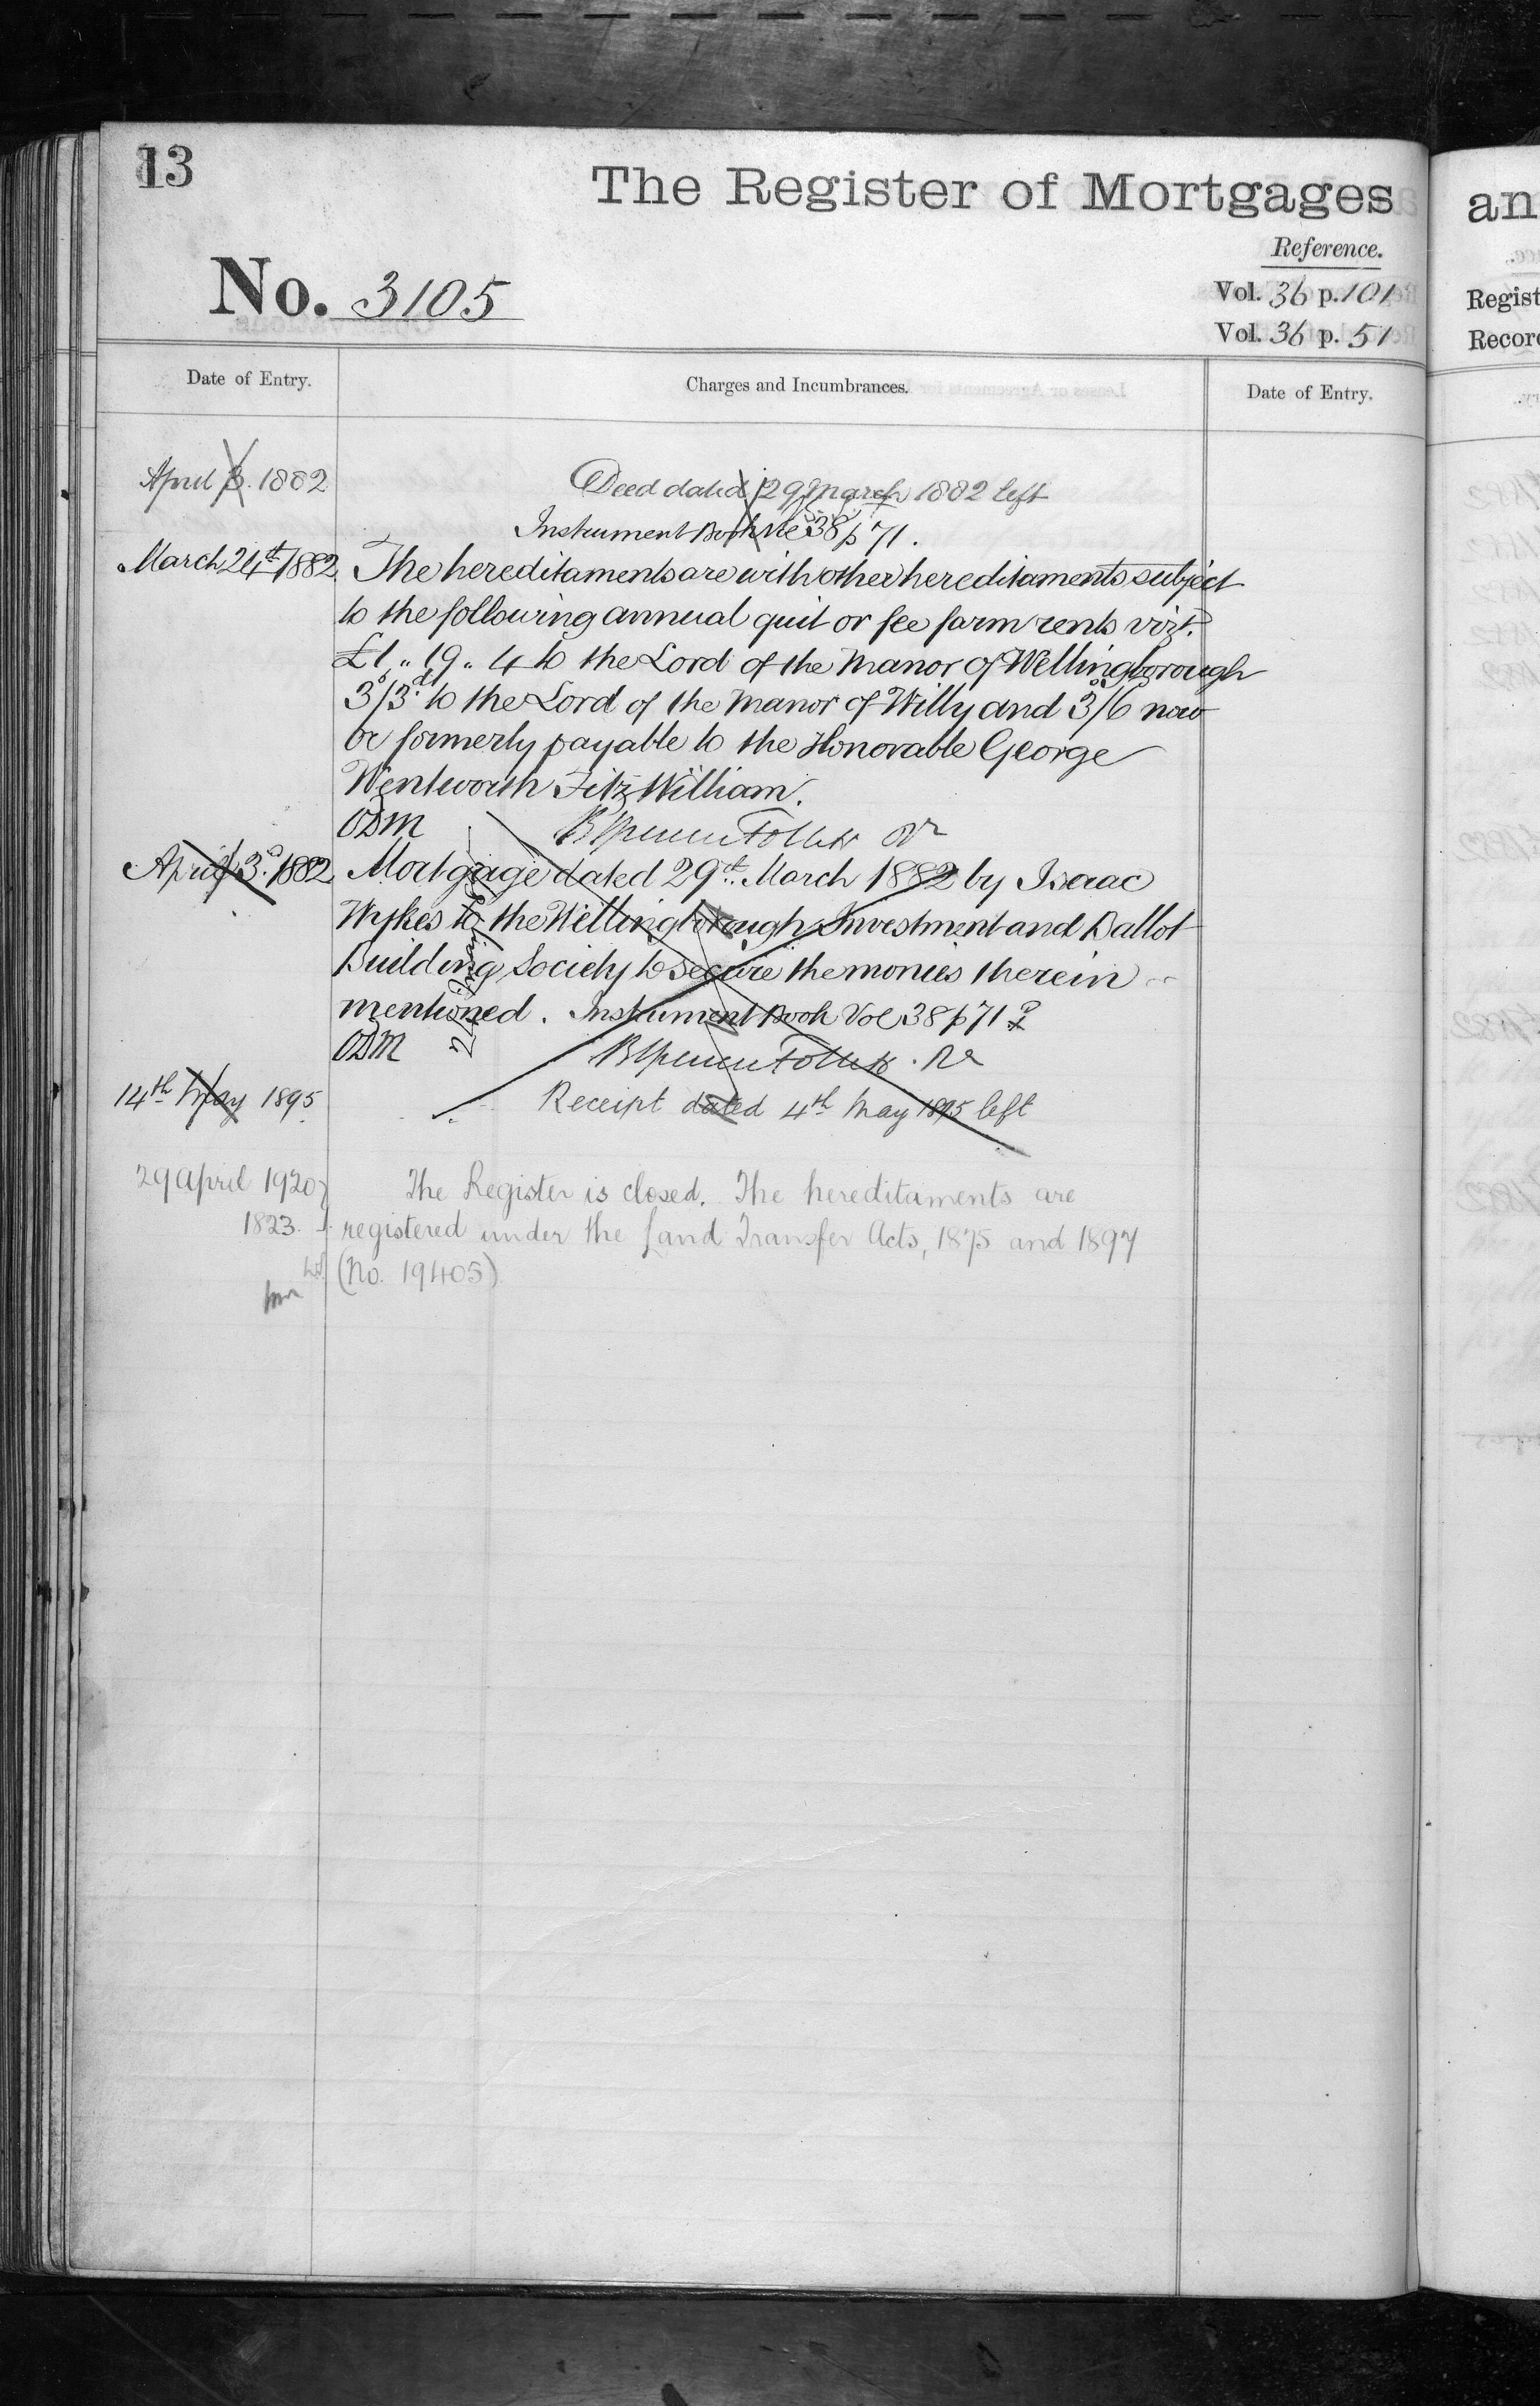 13
The Register of Mortgages
an
Reference.
No. 3105
Vol. 36 p. 101
Regist
Vol. 36 p. 51
Record
Date of Entry.
Charges and Incumbrances.
Date of Entry.
April 3. 1882
Deed dated 29 March 1882 left
Instrument Book Vol 38 p 71.
March 24th 1882
The hereditaments are with other hereditaments subject
to the following annual quit or fee farm rents vizt.
£1 „ 19 „ 4 to the Lord of the Manor of Wellingborough
3s/3d to the Lord of the Manor of Willy and 3s/6 now
or formerly payable to the Honorable George
Wentworth Fitz William.
ODM
April 3d. 1882
Mortgage dated 29th. March 1882 by Isaac
Wykes to the Wellingborough Investment and Ballot
Building Society to secure the monies therein
mentioned. Instrument Book Vol 38 p 71
ODM
14th May 1895.
Receipt dated 4th May 1895 left
29 April 1920
The Register is closed. The hereditaments are
1823.
registered under the Land Transfer Acts, 1875 and 1897
(No. 19405)